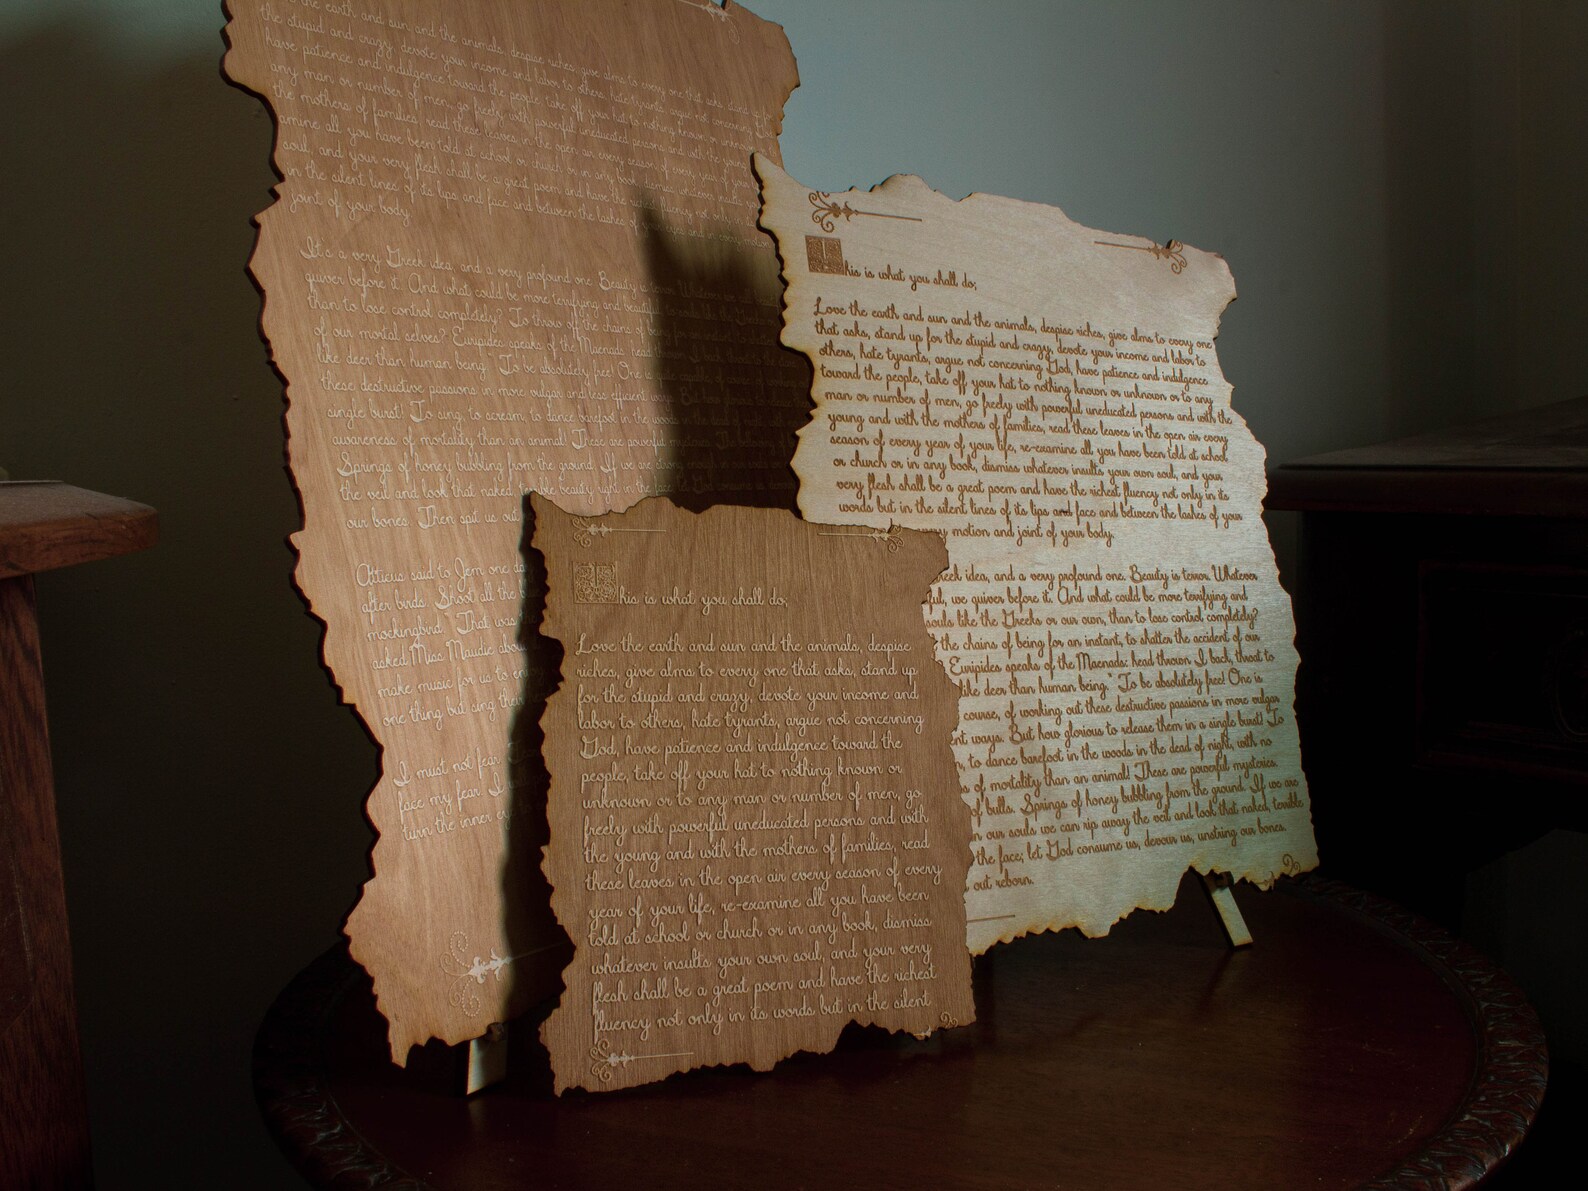 the earth and sun and the animals, despise riches, give alms to every one that asks, stand
the stupid and crazy, devote your income and labor to others, hate tyrants, argue not concerning
have patience and indulgence toward the people, take off your hat to nothing known or unknown
any man or number of men, go freely with powerful uneducated persons and with the young
the mothers of families, read these leaves in the open air every season of every year of your
amine all you have been told at school or church or in any book, dismiss whatever insults
soul, and your very flesh shall be a great poem and have the richest fluency not only
in the silent lines of its lips and face and between the lashes of your eyes and in every motion
joint of your body.
It's a very Greek idea, and a very profound one. Beauty is terror. Whatever we call
quiver before it. And what could be more terrifying and beautiful
than to lose control completely? To throw off the chains of being for
of our mortal selves? Euripides speaks of the Maenads: head thrown I back
like deer than human being." To be absolutely free! One
these destructive passions in more vulgar and less efficient ways. But how glorious
single burst! To sing, to scream, to dance barefoot in the woods
awareness of mortality than an animal! These are powerful mysteries.
Springs of honey bubbling from the ground. If we are strong enough in our souls
the veil and look that naked, terrible beauty right in the face; let God consume us
our bones. Then spit us out
Atticus said to Jem one da
after birds. Shoot all the b
mockingbird." That was
asked Miss Maudie abou
make music for us to en
one thing but sing their
I must not fear.
face my fear. I
turn the inner e
This is what you shall do;
Love the earth and sun and the animals, despise riches, give alms to every one
that asks, stand up for the stupid and crazy, devote your income and labor to
others, hate tyrants, argue not concerning God, have patience and indulgence
toward the people, take off your hat to nothing known or unknown or to any
man or number of men, go freely with powerful uneducated persons and with the
young and with the mothers of families, read these leaves in the open air every
season of every year of your life, re-examine all you have been told at school
or church or in any book, dismiss whatever insults your own soul, and your
very flesh shall be a great poem and have the richest fluency not only in its
words but in the silent lines of its lips and face and between the lashes of your
motion and joint of your body.
reek idea, and a very profound one. Beauty is terror. Whatever
ful, we quiver before it. And what could be more terrifying and
souls like the Greeks or our own, than to lose control completely?
the chains of being for an instant, to shatter the accident of our
Euripides speaks of the Maenads: head thrown I back, throat to
like deer than human being." To be absolutely free! One is
course, of working out these destructive passions in more vulgar
nt ways. But how glorious to release them in a single burst! To
to dance barefoot in the woods in the dead of night, with no
s of mortality than an animal! These are powerful mysteries.
of bulls. Springs of honey bubbling from the ground. If we are
n our souls we can rip away the veil and look that naked, terrible
the face; let God consume us, devour us, unstring our bones.
out reborn.
This is what you shall do;
Love the earth and sun and the animals, despise
riches, give alms to every one that asks, stand up
for the stupid and crazy, devote your income and
labor to others, hate tyrants, argue not concerning
God, have patience and indulgence toward the
people, take off your hat to nothing known or
unknown or to any man or number of men, go
freely with powerful uneducated persons and with
the young and with the mothers of families, read
these leaves in the open air every season of every
year of your life, re-examine all you have been
told at school or church or in any book, dismiss
whatever insults your own soul, and your very
flesh shall be a great poem and have the richest
fluency not only in its words but in the silent